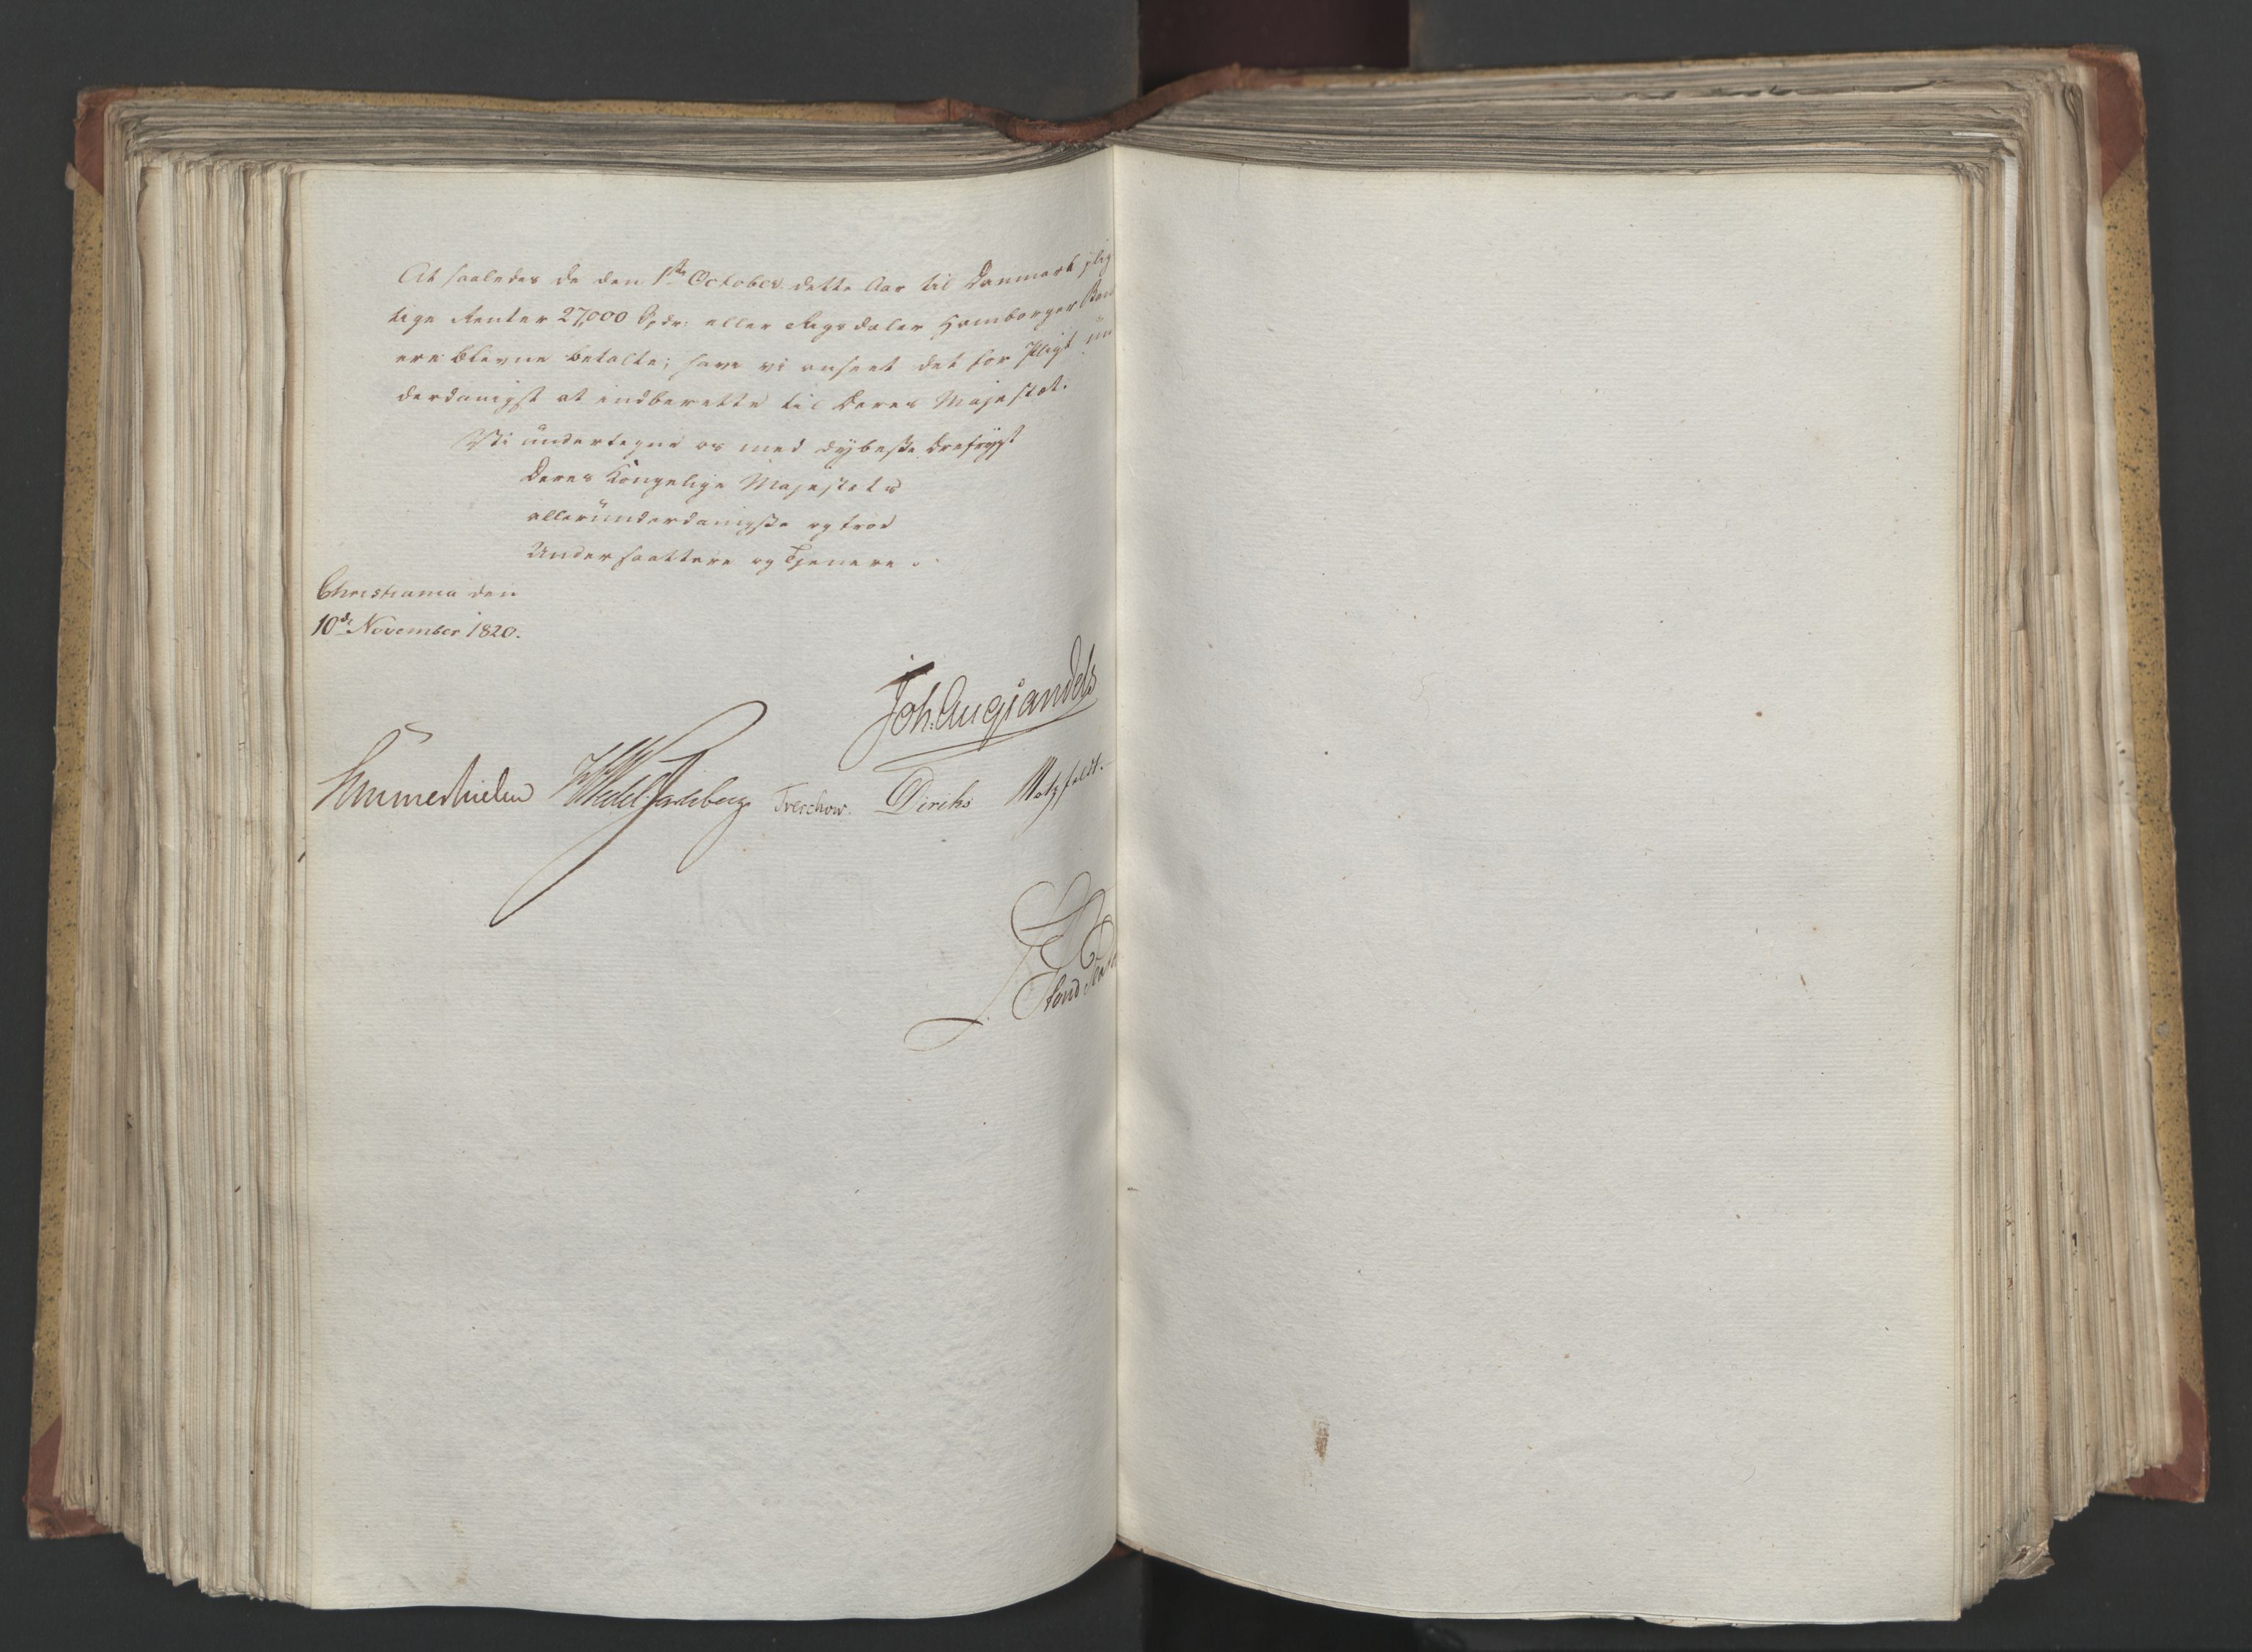 At saaledes de den 1ste October dette Aar til Danmark plig
tige Renter 27,000 Spdr: eller Rigsdaler Hamborger Ban
ere blevne betalte; have vi anseet det for Pligt un
derdanigst at indberette til Deres Majestæt.
Vi undertegne os med dybeste Ærefrygt
Deres Kongelige Majestets
allerunderdanigste og troe
Undersaattere og Tjenere.
Christiania den
10de November 1820.
Joh. Aug Sandels
Sommerhielm WedelJarlsberg Treschow. Diriks Motzfeldt.